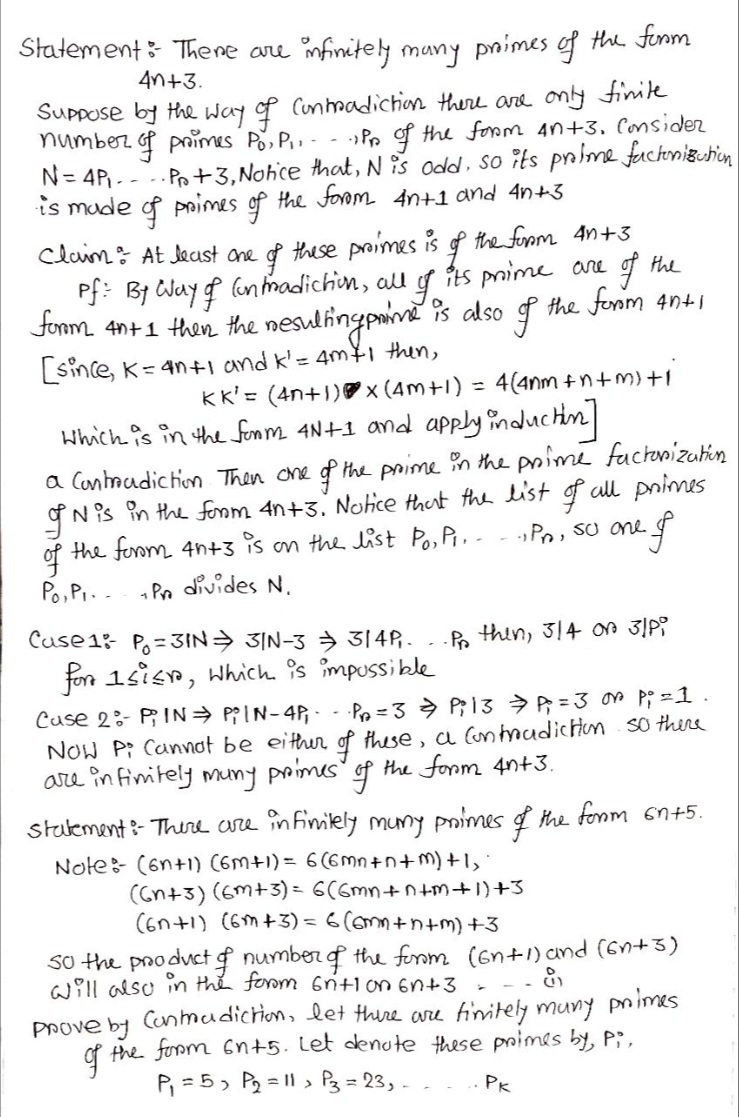 Statement :- There are infinitely many primes of the form
4n+3.
Suppose by the way of Contradiction there are only finite
number of primes P₀, P₁, - - ., Pₙ of the form 4n+3. Consider
N = 4P₁. - - . . Pₙ + 3, Notice that, N is odd. so its prime factorization
is made of primes of the form 4n+1 and 4n+3
Claim :- At least one of these primes is of the form 4n+3
Pf :- By way of Contradiction, all of its prime are of the
form 4n+1 then the resulting prime is also of the form 4n+1
[since, K = 4n+1 and k' = 4m+1 then,
KK' = (4n+1) x (4m+1) = 4(4nm + n + m) + 1
which is in the form 4N+1 and apply induction]
a Contradiction Then one of the prime in the prime factorization
of N is in the form 4n+3. Notice that the list of all primes
of the form 4n+3 is on the list P₀, P₁, - - . ., Pₙ, so one of
P₀, P₁. - . . , Pₙ divides N.
Case 1 :- P₀ = 3|N ⇒ 3|N-3 ⇒ 3|4P₁. . . Pₙ then, 3|4 or 3|Pᵢ
for 1≤i≤n, which is impossible
Case 2 :- Pᵢ|N ⇒ Pᵢ|N-4P₁ - - . Pₙ = 3 ⇒ Pᵢ|3 ⇒ Pᵢ = 3 or Pᵢ = 1 .
NOW Pᵢ Cannot be either of these, a Contradiction so there
are infinitely many primes of the form 4n+3.
statement :- There are infinitely many primes of the form 6n+5.
Note :- (6n+1) (6m+1) = 6(6mn+n+m)+1,
(6n+3) (6m+3) = 6(6mn+n+m+1)+3
(6n+1) (6m+3) = 6(6mn+n+m)+3
so the product of number of the form (6n+1) and (6n+3)
will also in the form 6n+1 or 6n+3 - - - (i)
Prove by Contradiction, let there are finitely many primes
of the form 6n+5. Let denote these primes by, Pᵢ,
P₁ = 5, P₂ = 11, P₃ = 23, . . . . . . Pₖ